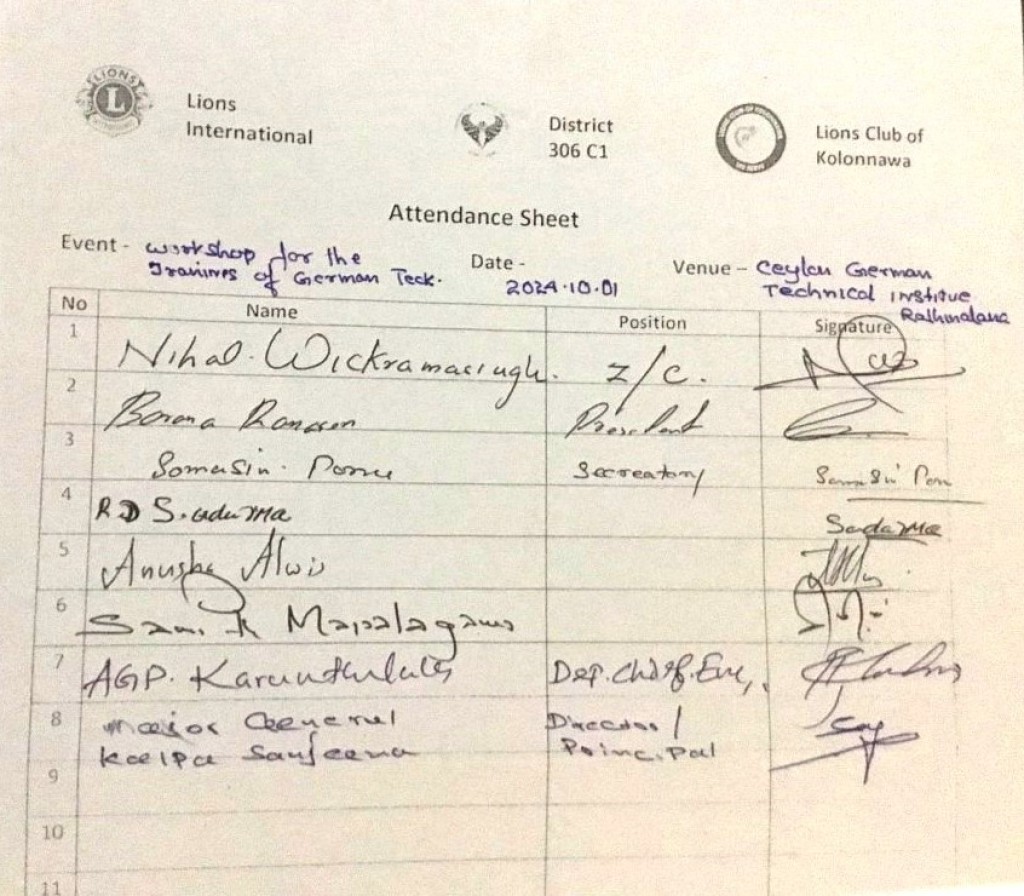 LIONS
L
Lions
International
District
306 C1
Lions Club of
Kolonnawa
Attendance Sheet
Event - workshop for the
of German Teck.
Date -
2024.10.01
Venue - Ceylon German
Technical institue
Rathmalana
No Name Position Signature
1 Nihal. Wickramasingh. Z/C.
2 President
3 Somasiri Secreatory
4 R D S. Sadarma
5 Anusha Alwis
6 Mapalagama
7 AGP. Karunathilake Dep. Chief. Eng,.
8 Major General Director /
Kalpa Sanjeewa Principal
9
10
11